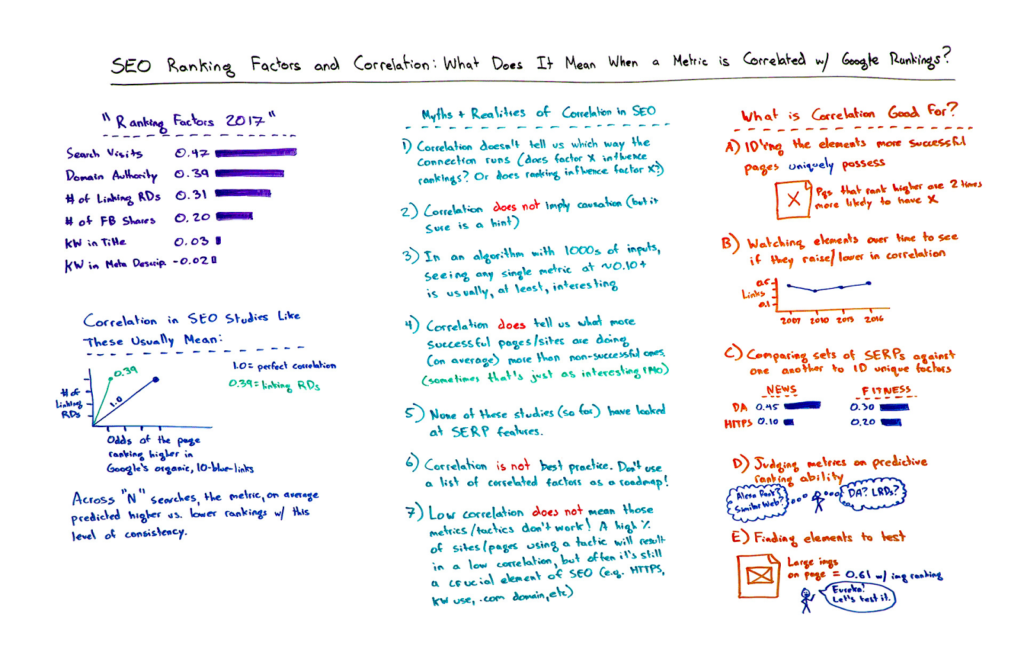 SEO Ranking Factors and Correlation: What Does It Mean When a Metric is Correlated w/ Google Rankings?
"Ranking Factors 2017"
Search Visits 0.47
Domain Authority 0.39
# of Linking RDs 0.31
# of FB Shares 0.20
KW in Title 0.03
KW in Meta Descrip -0.02
Correlation in SEO Studies Like
These Usually Mean:
0.39
1.0 = perfect correlation
0.39 = linking RDs
# of
Linking
RDs
1.0
Odds of the page
ranking higher in
Google's organic, 10-blue-links
Across "N" searches, the metric, on average
predicted higher vs. lower rankings w/ this
level of consistency.
Myths + Realities of Correlation in SEO
1) Correlation doesn't tell us which way the
connection runs (does factor X influence
rankings? Or does ranking influence factor X?)
2) Correlation does not imply causation (but it
sure is a hint)
3) In an algorithm with 1000s of inputs,
seeing any single metric at ~0.10+
is usually, at least, interesting
4) Correlation does tell us what more
successful pages/sites are doing
(on average) more than non-successful ones
(sometimes that's just as interesting IMO)
5) None of these studies (so far) have looked
at SERP features.
6) Correlation is not best practice. Don't use
a list of correlated factors as a roadmap!
7) Low correlation does not mean those
metrics/tactics don't work! A high %
of sites/pages using a tactic will result
in a low correlation, but often it's still
a crucial element of SEO (e.g. HTTPS,
KW use, .com domain, etc)
What is Correlation Good For?
A) ID'ing the elements more successful
pages uniquely possess
X
Pgs that rank higher are 2 times
more likely to have X
B) Watching elements over time to see
if they raise/lower in correlation
0.5
Links
0.1
2007 2010 2013 2016
C) Comparing sets of SERPs against
one another to ID unique factors
NEWS FITNESS
DA 0.45 0.30
HTTPS 0.10 0.20
D) Judging metrics on predictive
ranking ability
Alexa Rank?
SimilarWeb?
DA? LRDs?
E) Finding elements to test
Large imgs
on page = 0.61 w/ img ranking
Eureka!
Let's test it.